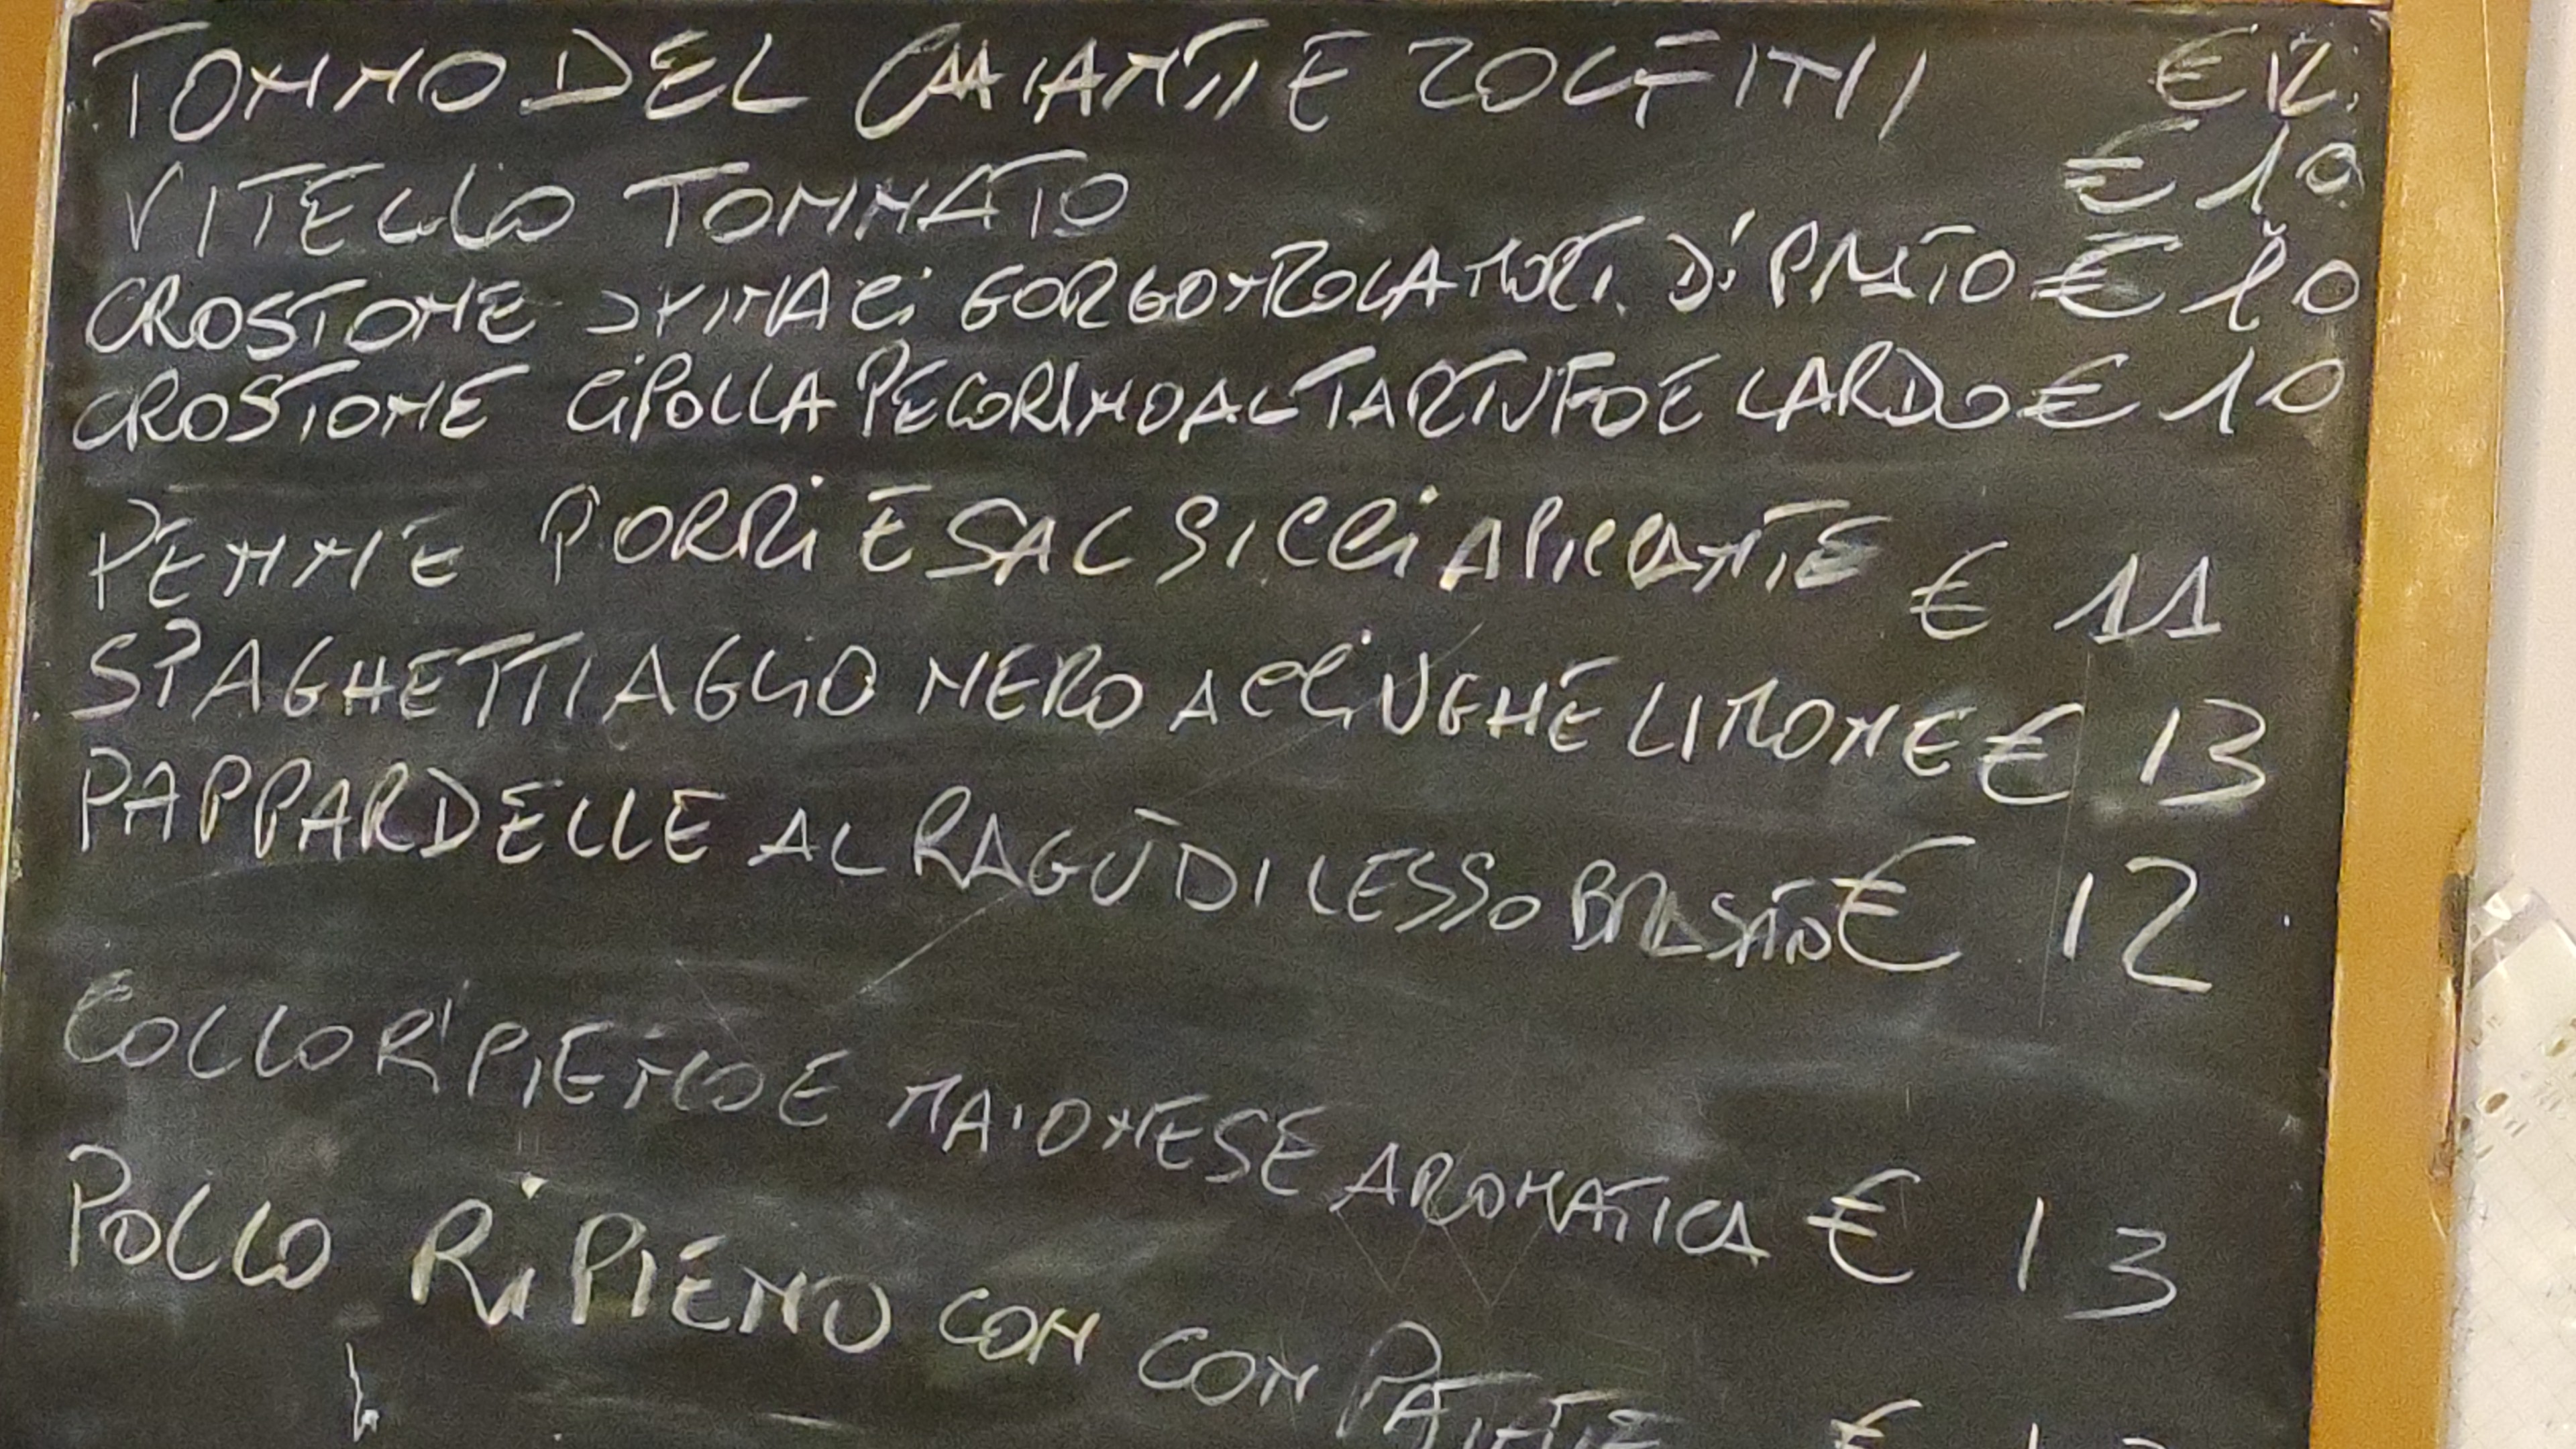 TONNO DEL CHIANTI E ZOLFINI € 12
VITELLO TONNATO € 10
CROSTONE SPINACI GORGONZOLA MORT. DI PRATO € 10
CROSTONE CIPOLLA PECORINO AL TARTUFO E LARDO € 10
PENNE PORRI E SALSICCIA PICCANTE € 11
SPAGHETTI AGLIO NERO ACCIUGHE LIMONE € 13
PAPPARDELLE AL RAGÙ DI LESSO € 12
COLLO RIPIENO E MAIONESE AROMATICA € 13
POLLO RIPIENO CON CON PATATE €